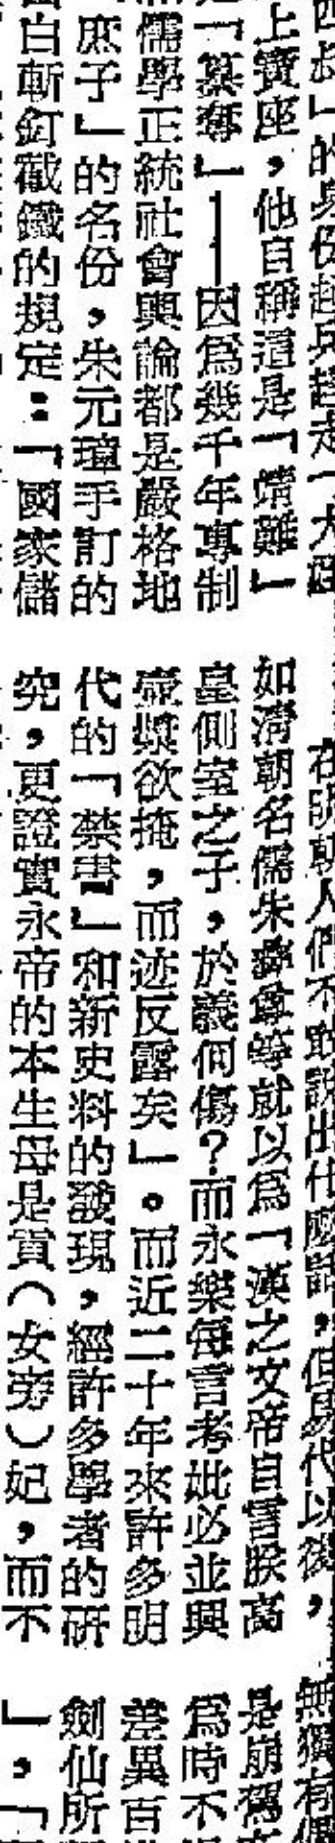 的身份起兵趕走「大
上寶座，他自稱這是「靖難」
是「篡奪」——因爲幾千年專制
儒學正統社會輿論都是嚴格地
「庶子」的名份，朱元璋手訂的
白斬釘截鐵的規定：「國家儲
在明朝人們不敢說出什麽話，但易代以後，
如清朝名儒朱彝尊等就以爲「漢之文帝自言朕高
皇側室之子，於義何傷？而永樂每言考妣必並興
欲掩，而迹反露矣」。而近二十年來許多明
代的「禁書」和新史料的發現，經許多學者的研
究，更證實永帝的本生母是貢（女旁）妃，而不
無獨有偶
是崩
爲時不
差異百
劍仙所
」，「